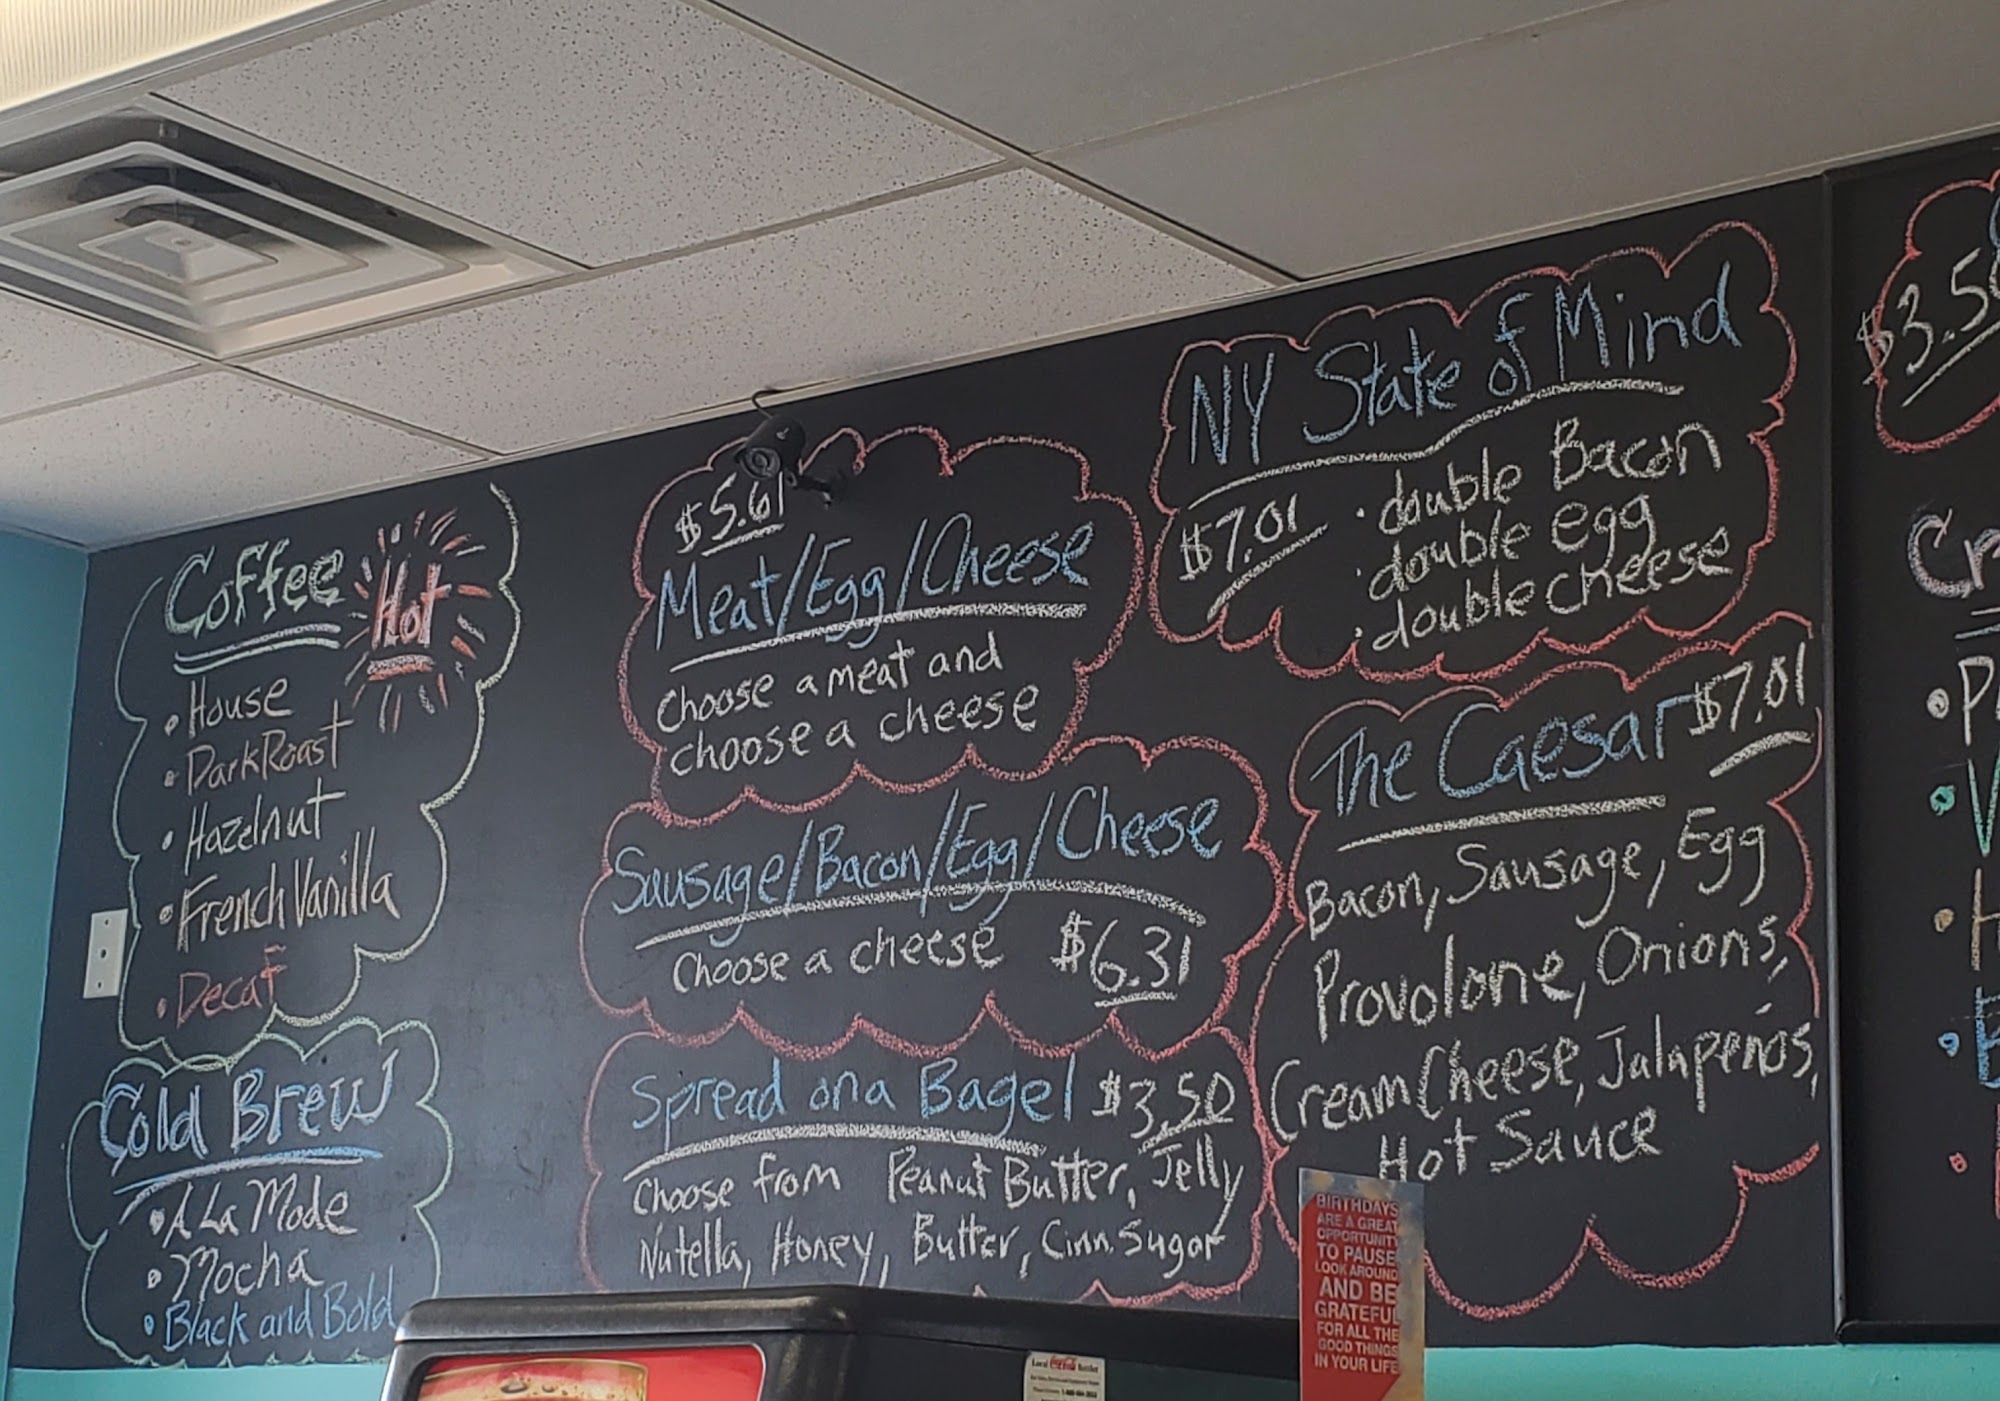 Coffee Hot
• House
• Dark Roast
• Hazelnut
• French Vanilla
• Decaf
Cold Brew
• A La Mode
• Mocha
• Black and Bold
$5.61
Meat/Egg/Cheese
Choose a meat and
choose a cheese
Sausage/Bacon/Egg/Cheese
Choose a cheese $6.31
Spread on a Bagel $3.50
Choose from Peanut Butter, Jelly
Nutella, Honey, Butter, Cinn. Sugar
NY State of Mind
$7.01 • double Bacon
• double egg
• double cheese
The Caesar $7.01
Bacon, Sausage, Egg
Provolone, Onions,
Cream Cheese, Jalapeños,
Hot Sauce
$3.50
Cr
• P
• V
• H
BIRTHDAYS
ARE A GREAT
OPPORTUNITY
TO PAUSE
LOOK AROUND
AND BE
GRATEFUL
FOR ALL THE
GOOD THINGS
IN YOUR LIFE
Local Coca-Cola Bottler